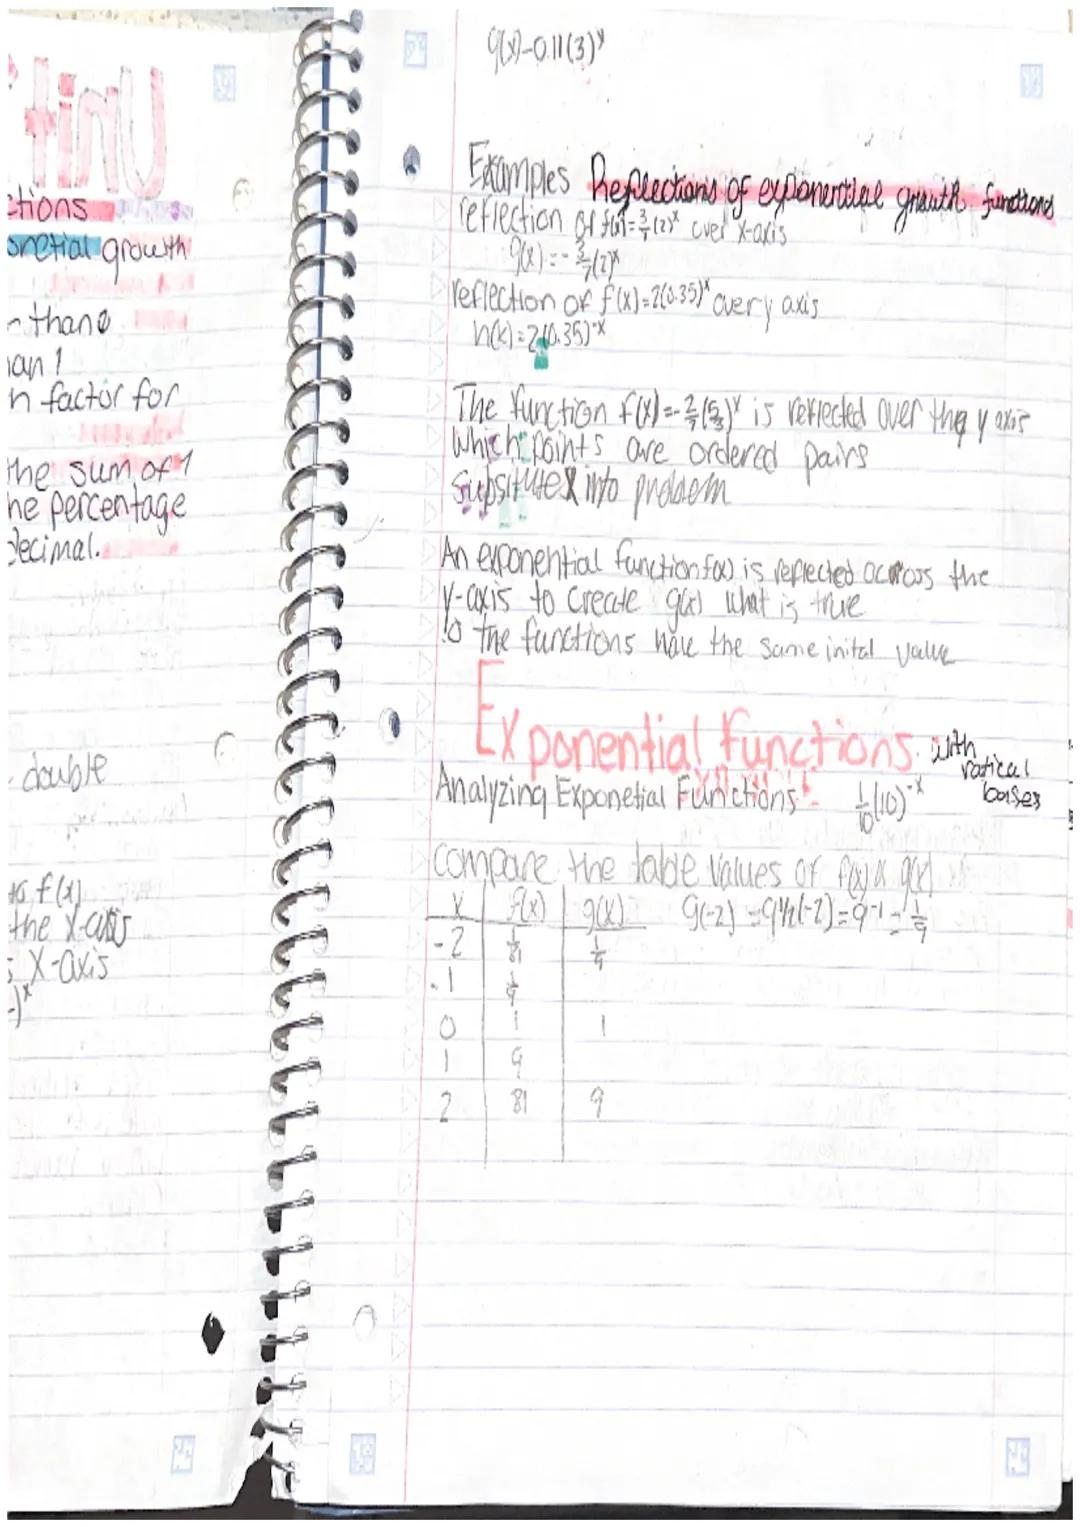 tinU
ctions
onetial growth
r than 0
han 1
h factor for
the sum of 1
he percentage
decimal.
double
to f(x)
the x-axis
s x-axis
-)ˣ
g(x)-0.11(3)ˣ
Examples Reflections of exponential growth functions
reflection of f(x)=3/7(2)ˣ over x-axis
g(x)=-3/7(2)ˣ
reflection of f(x)=2(0.35)ˣ over y axis
h(x)=2(0.35)⁻ˣ
The function f(x)=-2/7(5/3)ˣ is reflected over the y axis
Which points are ordered pairs
Subsitute x into problem
An exponential function f(x) is reflected across the
y-axis to create g(x) what is true
the functions have the same inital value
Exponential functions with
ratical
bases
Analyzing Exponetial Functions 1/10(10)⁻ˣ
compare the table values of f(x) & g(x)
x f(x) g(x) g(-2)=9^1/2(-2)=9⁻¹=1/9
-2 1/81 1/9
-1 1/9
0 1 1
1 9
2 81 9